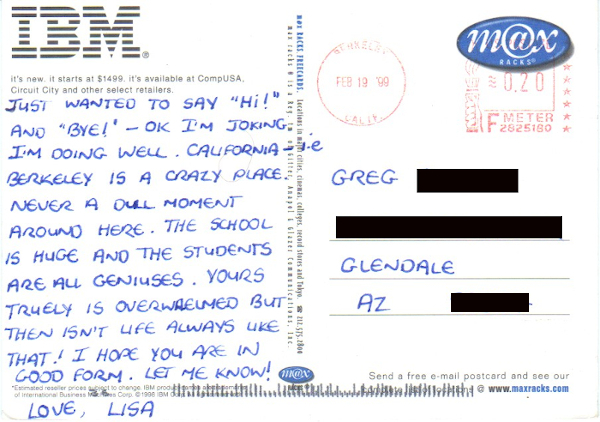 IBM®
it's new. it starts at $1499. it's available at CompUSA,
Circuit City and other select retailers.
JUST WANTED TO SAY "HI!"
AND "BYE!" - OK I'M JOKING
I'M DOING WELL. CALIFORNIA i.e
BERKELEY IS A CRAZY PLACE.
NEVER A DULL MOMENT
AROUND HERE. THE SCHOOL
IS HUGE AND THE STUDENTS
ARE ALL GENIUSES. YOURS
TRUELY IS OVERWHELMED BUT
THEN ISN'T LIFE ALWAYS LIKE
THAT! I HOPE YOU ARE IN
GOOD FORM. LET ME KNOW!
*Estimated reseller prices subject to change. IBM
of International Business Machines Corp. ©1998 IBM Corp. All rights reserved.
LOVE, LISA
MAX RACKS FREECARDS. Locations in major cities, cinemas, colleges, record stores and Tokyo.
max racks is a Reg. TM of
212.575.2800
m@x
RACKS
BERKELEY
FEB 19 '99
CALIF.
m@x
RACKS®
0.20
METER
2825160
GREG
GLENDALE
AZ
Send a free e-mail postcard and see our
@ www.maxracks.com